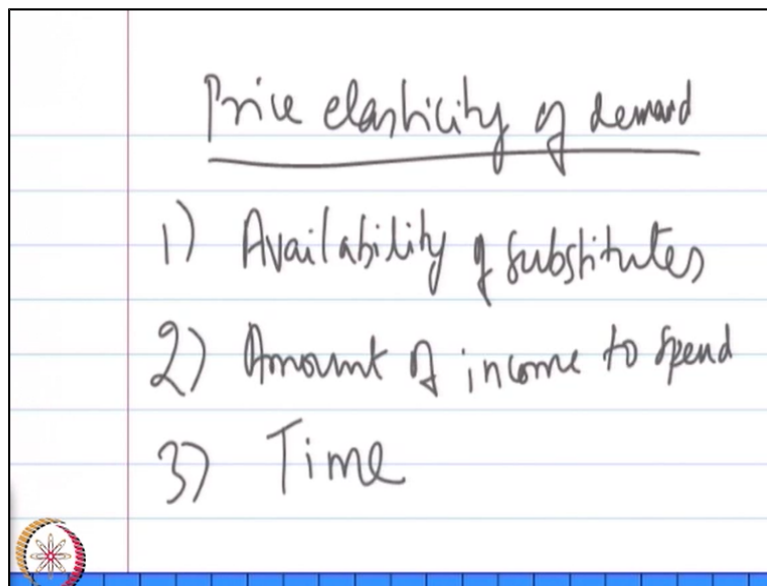 Price elasticity of demand
1) Availability of substitutes
2) Amount of income to spend
3) Time